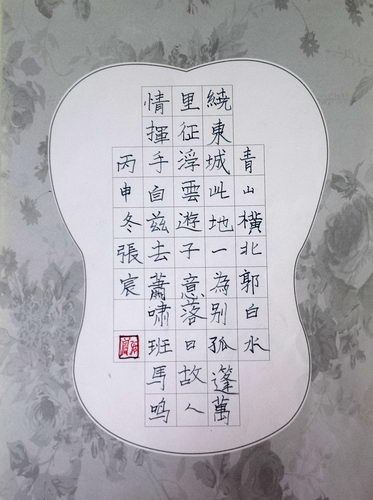 青山橫北郭白水
繞東城此地一為别孤蓬萬
里征浮雲遊子意落日故人
情揮手自兹去蕭嘯班馬鸣
丙申冬張宸